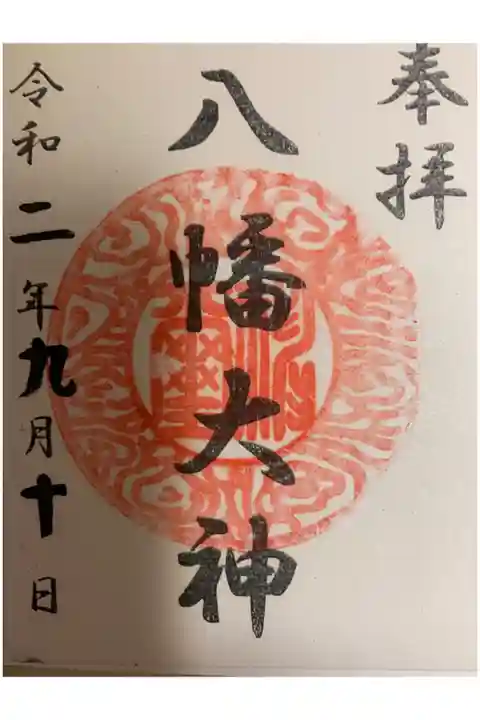 奉拝
八幡大神
令和二年九月十日